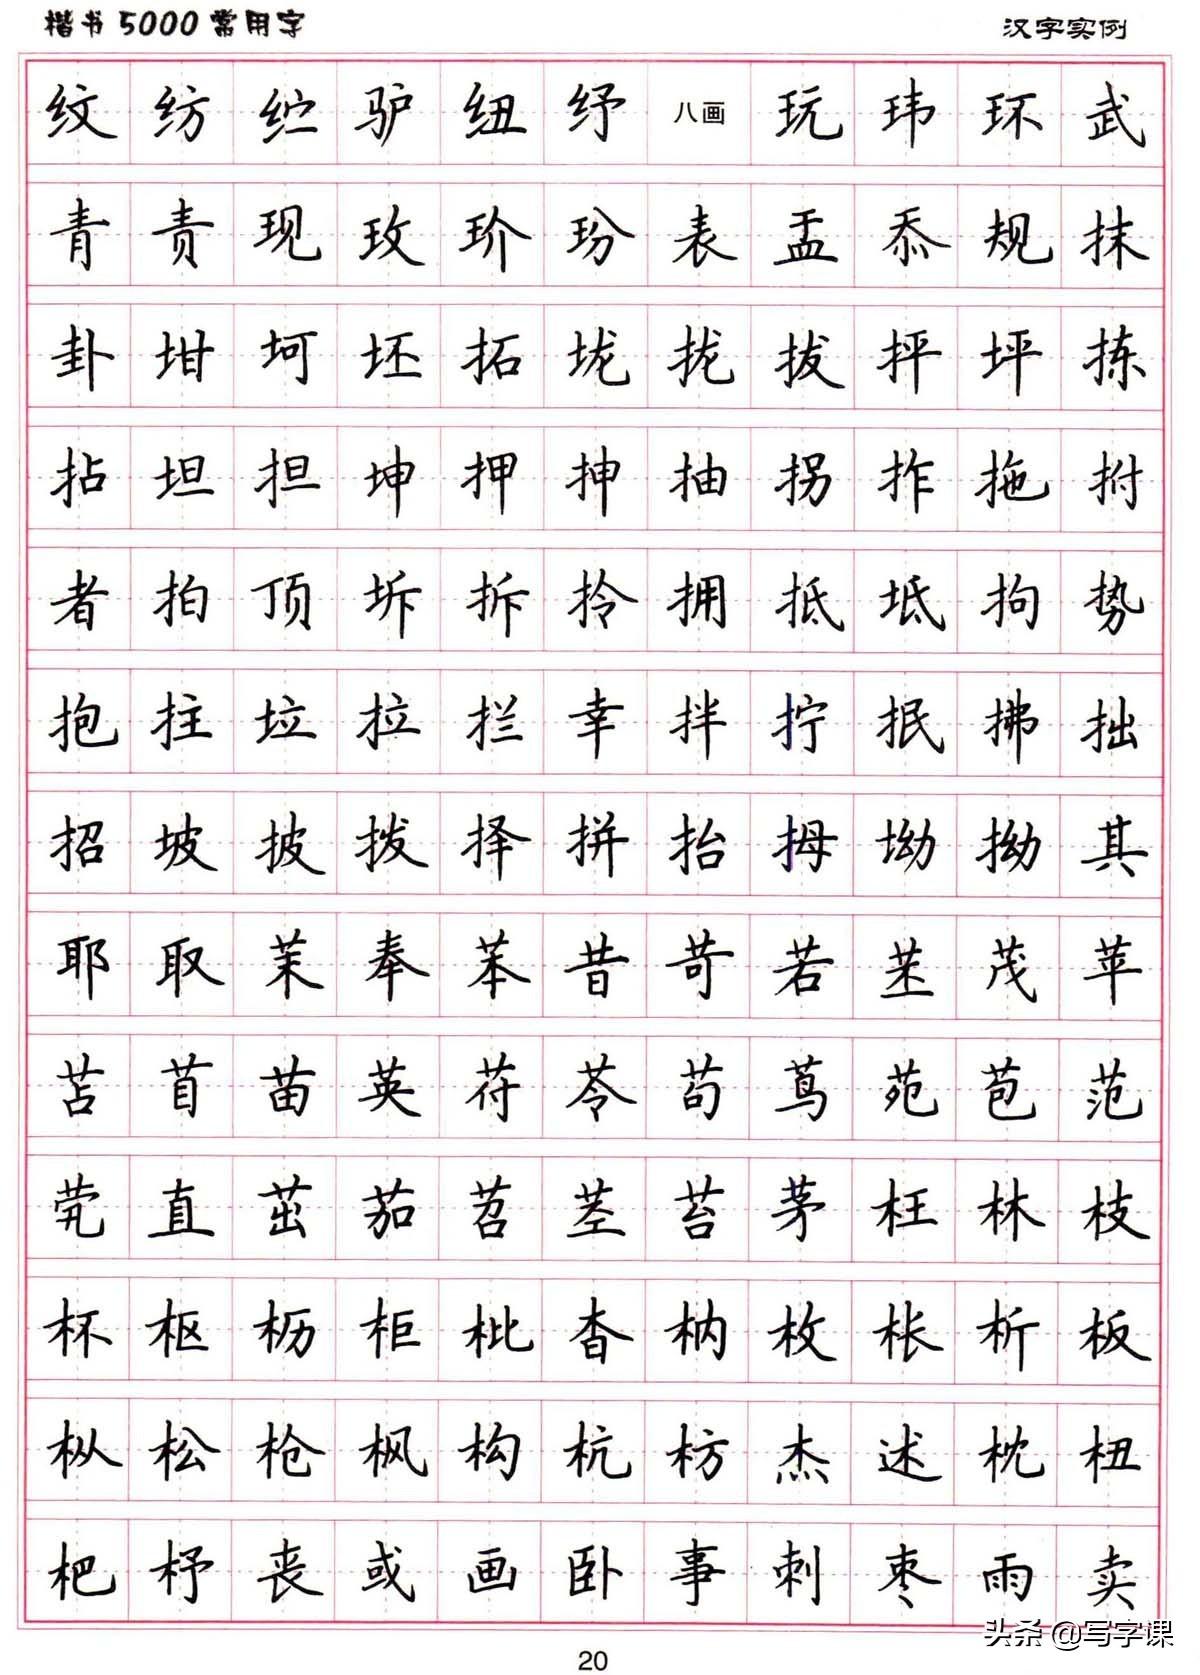 楷书5000常用字 汉字实例
纹 纺 纻 驴 纽 纾 八画 玩 玮 环 武
青 责 现 玫 玠 玢 表 盂 忝 规 抹
卦 坩 坷 坯 拓 垅 拢 拔 抨 坪 拣
拈 坦 担 坤 押 抻 抽 拐 拃 拖 拊
者 拍 顶 坼 拆 拎 拥 抵 坻 拘 势
抱 拄 垃 拉 拦 幸 拌 拧 抿 拂 拙
招 坡 披 拨 择 拚 抬 拇 坳 拗 其
耶 取 茉 奉 苯 昔 苛 若 茋 茂 苹
苫 苜 苗 英 苻 苓 苟 茑 苑 苞 范
茕 直 茁 茄 苕 茎 苔 茅 枉 林 枝
杯 枢 枥 柜 枇 杳 枘 枚 枨 析 板
枞 松 枪 枫 构 杭 枋 杰 述 枕 杻
杷 杼 丧 或 画 卧 事 刺 枣 雨 卖
头条 @写字课
20